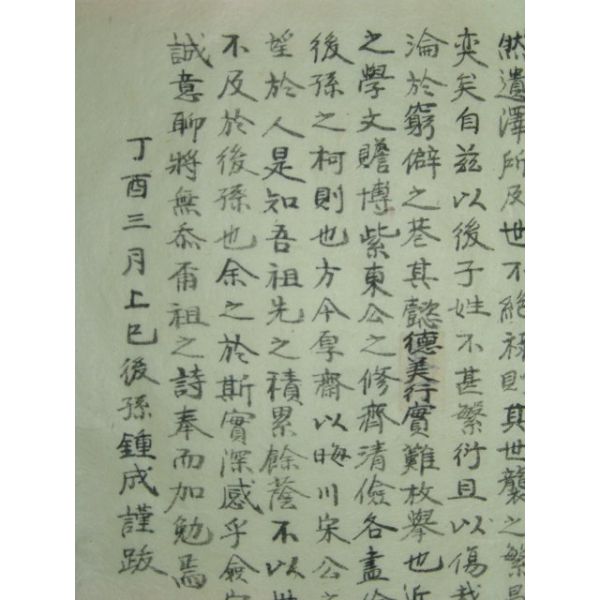 然遺澤所及世不絶祿則其世襲之繁
奕矣自茲以後子姓不甚繁衍且以傷哉
淪於窮僻之巷其懿德美行實難枚擧也近
之學文贍博紫東公之修齊清儉各盡
後孫之柯則也方今厚齋以晦川宋公之
望於人是知吾祖先之積累餘蔭不以世
不及於後孫也余之於斯實深感乎僉
誠意聊將無忝甭祖之詩奉而加勉焉
丁酉三月上巳後孫鍾成謹跋